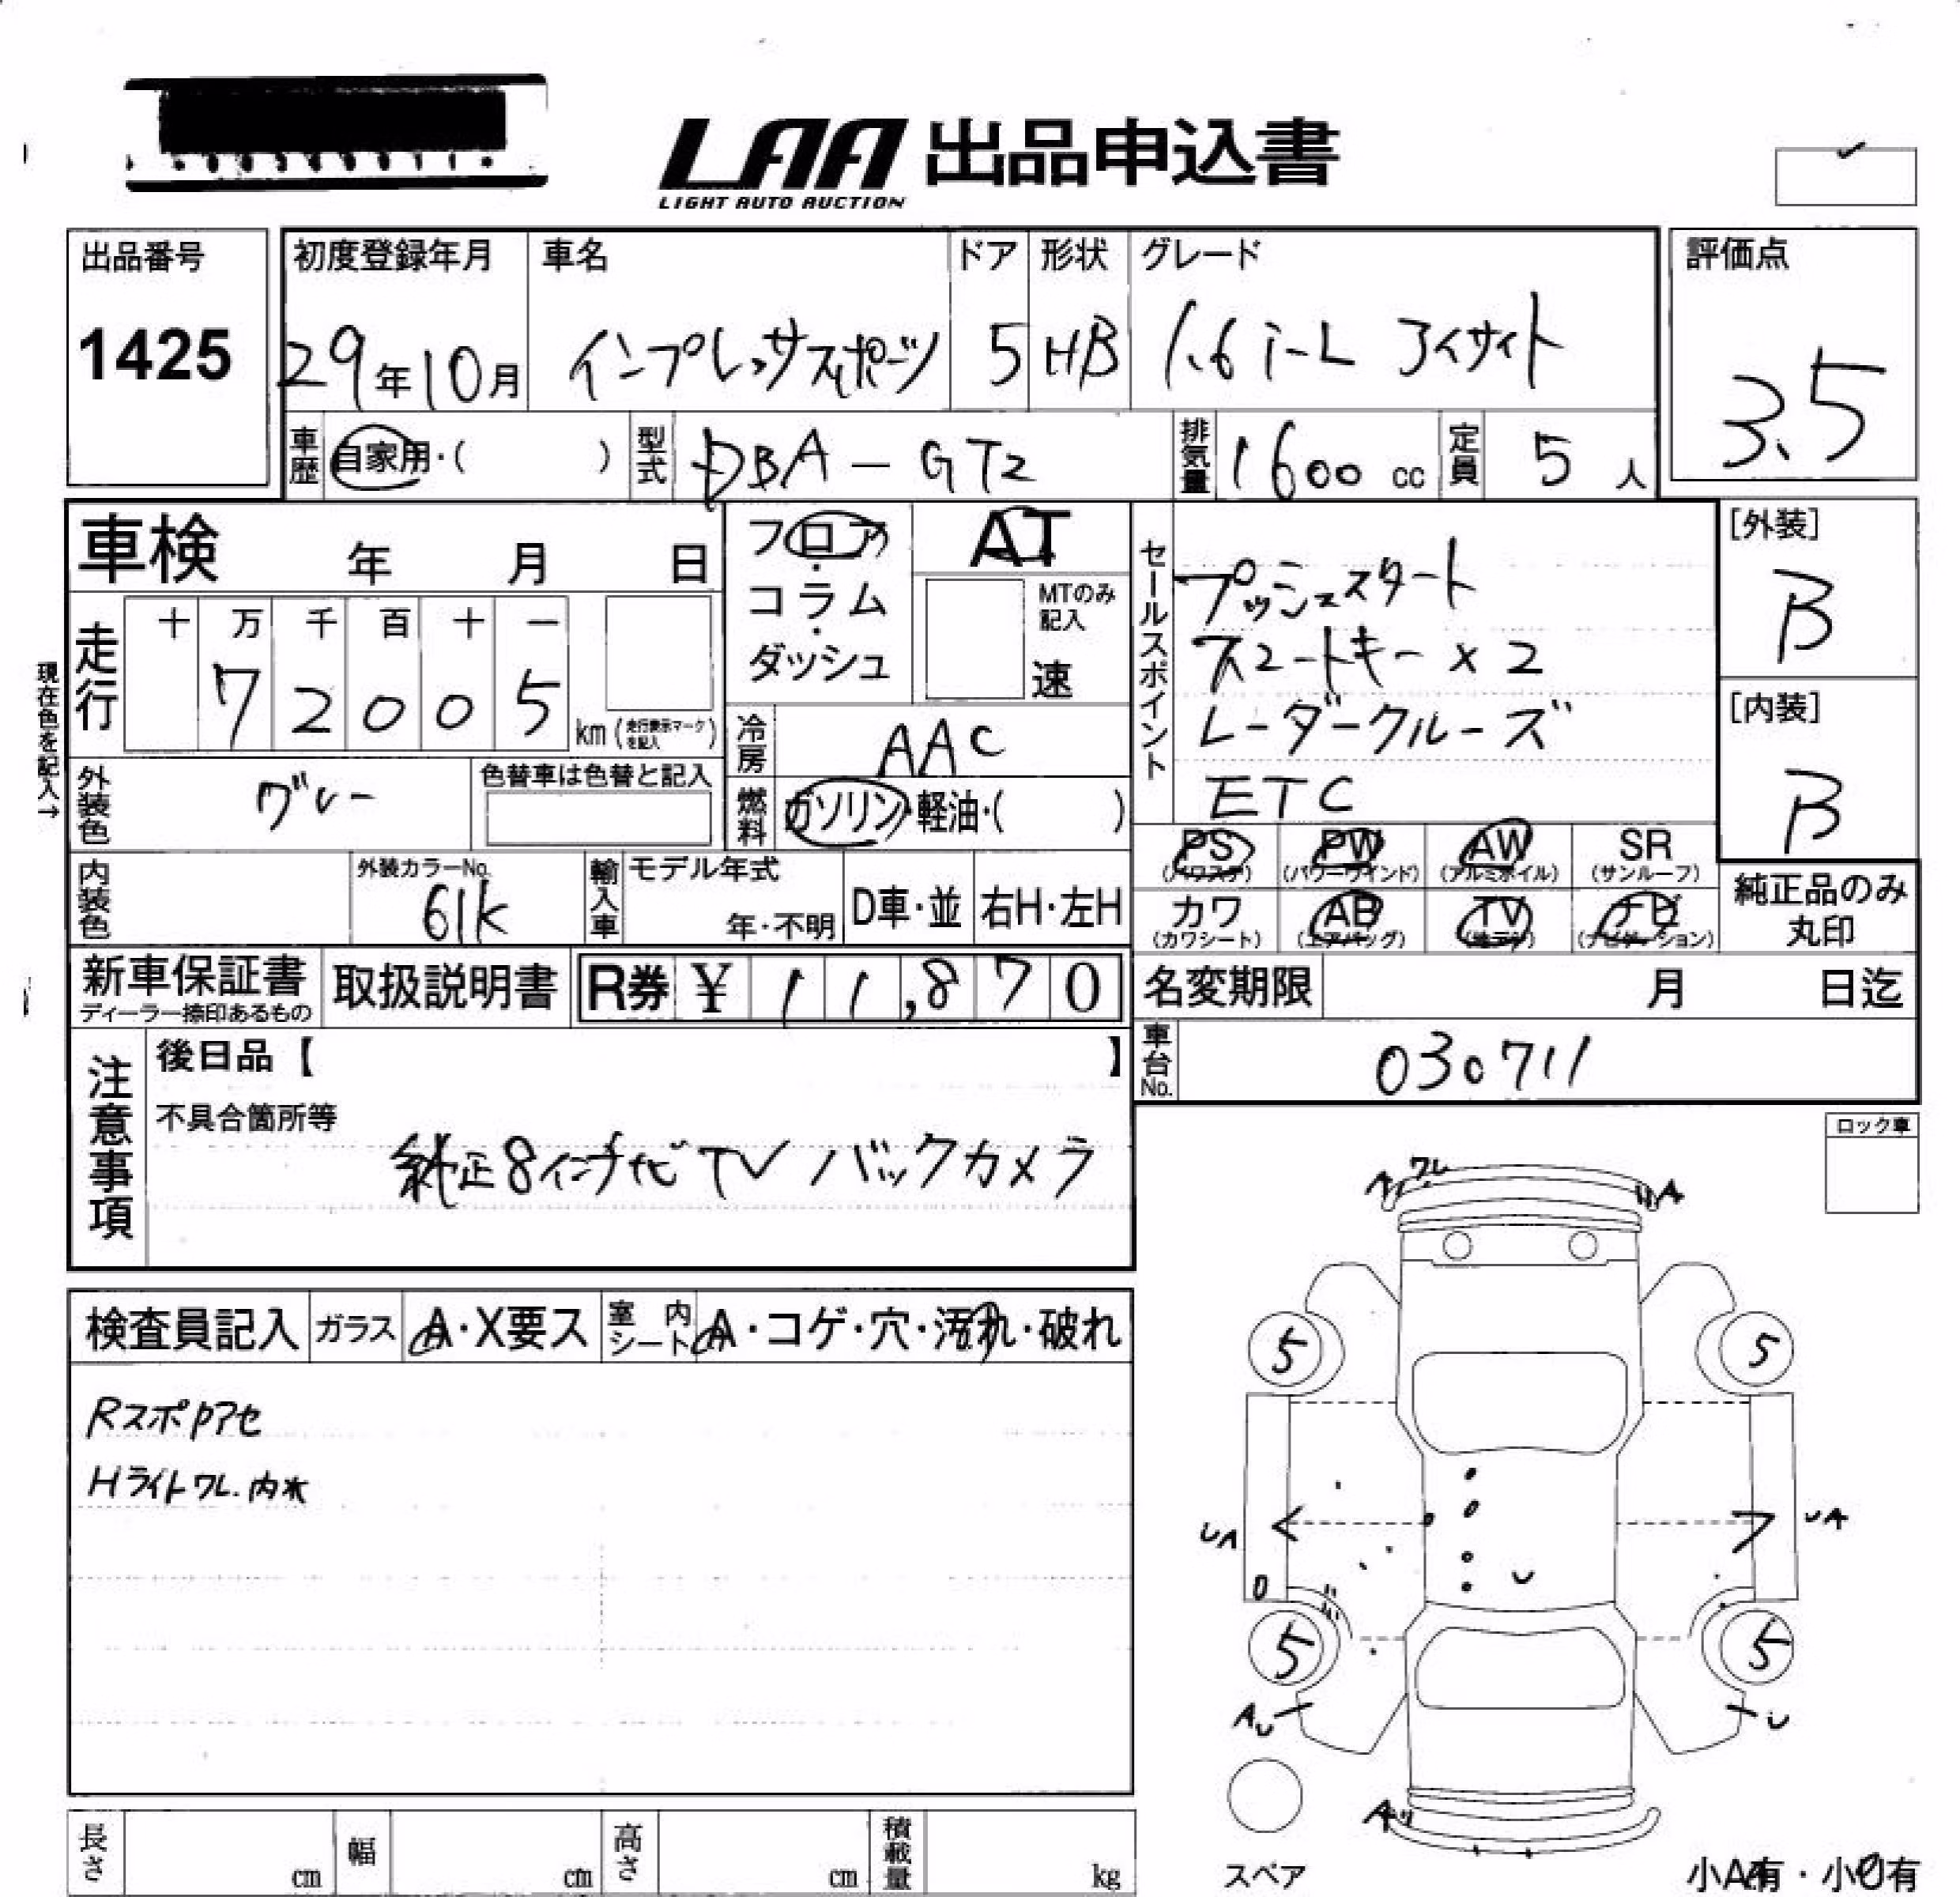 LAA 出品申込書
LIGHT AUTO AUCTION
出品番号
1425
初度登録年月
29年10月
車名
インプレッサスポーツ
ドア
5
形状
HB
グレード
1.6 i-L アイサイト
評価点
3.5
車歴
自家用・( )
型式
DBA-GT2
排気量
1600 cc
定員
5 人
車検 年 月 日
走行
十 万 千 百 十 一
7 2 0 0 5
km (走行表示マークを記入)
現在色を記入→
フロア・
コラム・
ダッシュ
AT
MTのみ
記入
速
冷房
AAC
燃料
ガソリン・軽油・( )
セールスポイント
プッシュスタート
スマートキー×2
レーダークルーズ
ETC
[外装]
B
[内装]
B
外装色
グレー
色替車は色替と記入
内装色
外装カラーNo.
61K
輸入車
モデル年式
年・不明
D車・並
右H・左H
PS
(パワステ)
PW
(パワーウインド)
AW
(アルミホイル)
SR
(サンルーフ)
カワ
(カワシート)
AB
(エアバッグ)
TV
(地デジ)
ナビ
(ナビゲーション)
純正品のみ
丸印
新車保証書
ディーラー捺印あるもの
取扱説明書
R券 ¥ 11,870
名変期限 月 日迄
車台No.
030711
注意事項
後日品【 】
不具合箇所等
純正8インチナビTV バックカメラ
ロック車
検査員記入
ガラス
A・X要ス
室内
シート
A・コゲ・穴・汚れ・破れ
RスポPアセ
Hライトワレ.内水
A ワレ
A
5
5
UA
UA
5
5
AU
U
A
スペア
小A有・小U有
長さ cm
幅 cm
高さ cm
積載量 kg